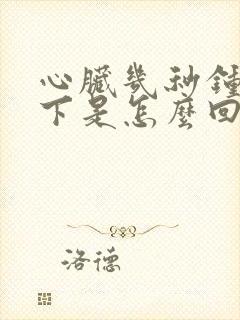 心臟幾秒鍾
下是怎麼回
洛德